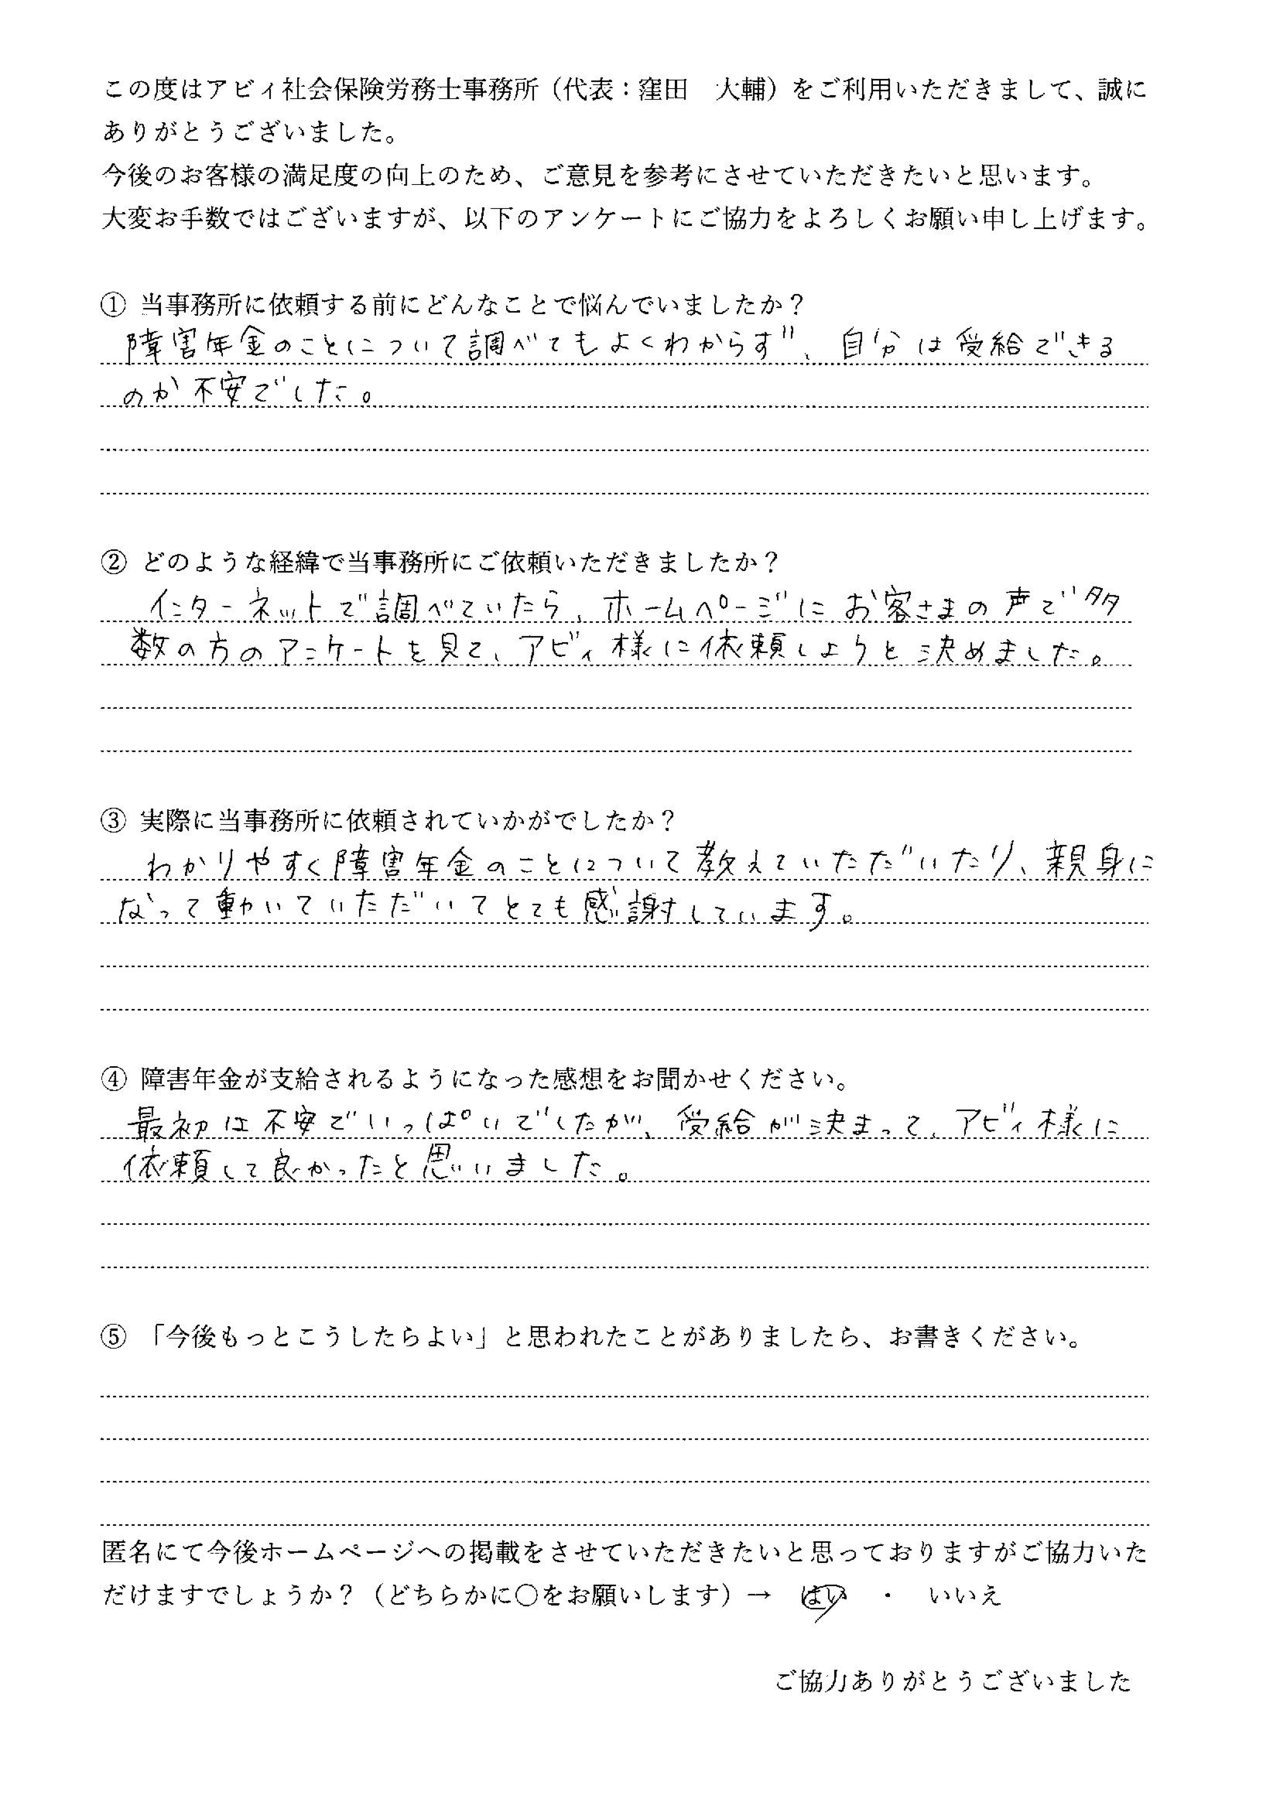 この度はアビィ社会保険労務士事務所（代表：窪田　大輔）をご利用いただきまして、誠に
ありがとうございました。
今後のお客様の満足度の向上のため、ご意見を参考にさせていただきたいと思います。
大変お手数ではございますが、以下のアンケートにご協力をよろしくお願い申し上げます。
① 当事務所に依頼する前にどんなことで悩んでいましたか？
障害年金のことについて調べてもよくわからず、自分は受給できる
のか不安でした。
② どのような経緯で当事務所にご依頼いただきましたか？
インターネットで調べていたら、ホームページにお客さまの声で多
数の方のアンケートを見て、アビィ様に依頼しようと決めました。
③ 実際に当事務所に依頼されていかがでしたか？
わかりやすく障害年金のことについて教えていただいたり、親身に
なって動いていただいてとても感謝しています。
④ 障害年金が支給されるようになった感想をお聞かせください。
最初は不安でいっぱいでしたが、受給が決まって、アビィ様に
依頼して良かったと思いました。
⑤ 「今後もっとこうしたらよい」と思われたことがありましたら、お書きください。
匿名にて今後ホームページへの掲載をさせていただきたいと思っておりますがご協力いた
だけますでしょうか？（どちらかに○をお願いします）→　はい　・　いいえ
ご協力ありがとうございました